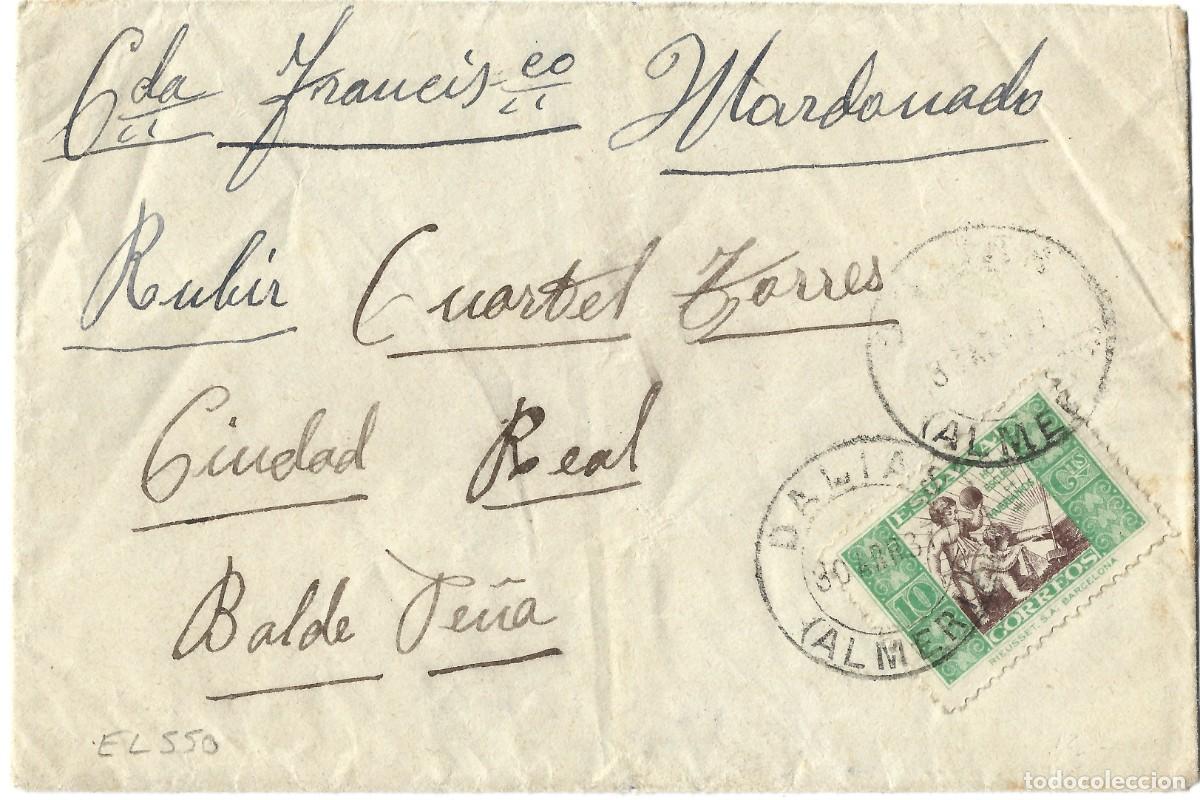 Cda Francisco Mardonado
Rubir Cuartel Torres
Ciudad Real
Balde Peña
EL 550
DALIAS
30 ABR 37
(ALMERIA)
(ALME
ESPAÑA
10 Cts
CORREOS
RIEUSSET S.A. BARCELONA
todocoleccion